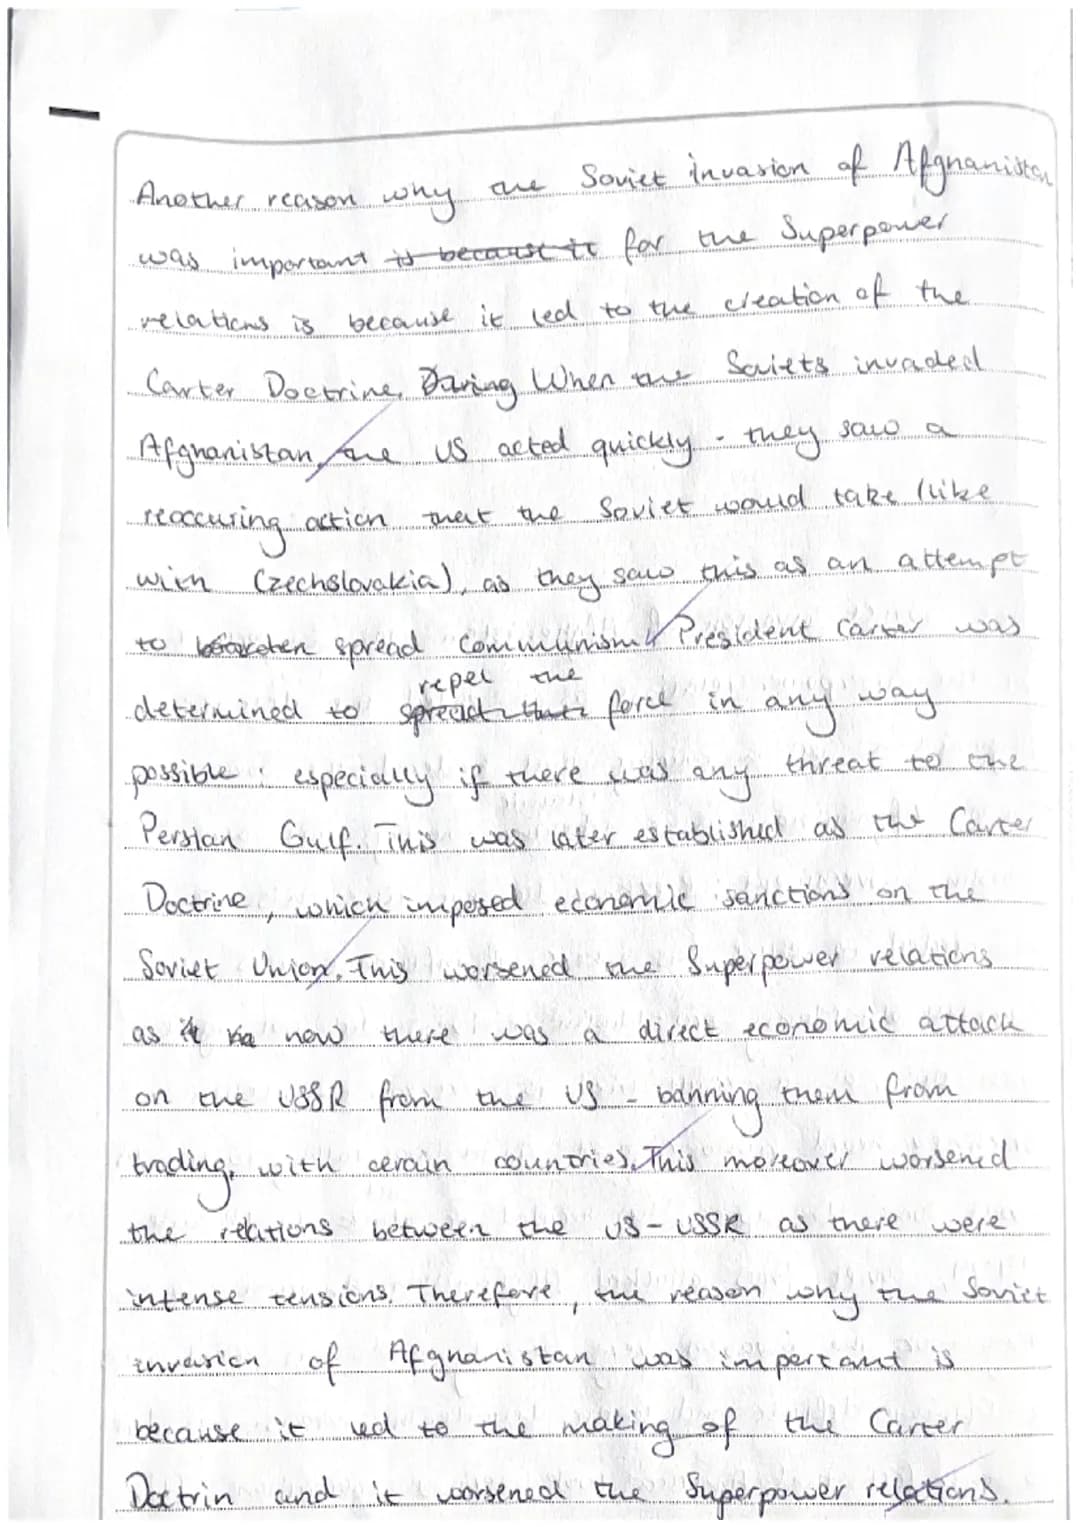 Another reason why the Soviet invasion of Afgnanistan
was important is because it for the Superpower
relations is because it led to the creation of the
Carter Doctrine. During When the Soviets invaded
Afghanistan, the US acted quickly - they saw a
reoccuring action that the Soviet would take (like
with Czechslovakia), as they saw this as an attempt
to spread Communism. President Carter was
repel the
determined to spread their force in any way
possible; especially if there was any threat to the
Persian Gulf. This was later established as the Carter
Doctrine, which imposed economic sanctions on the
Soviet Union. This worsened the Superpower relations
as it now there was a direct economic attack
on the USSR from the US - banning them from
trading, with cerain countries. This moreover worsened
the relations between the US-USSR as there were
intense tensions. Therefore, the reason why the Soviet
invasion of Afgnanistan was important is
because it led to the making of the Carter
Doctrin and it worsened the Superpower relations.